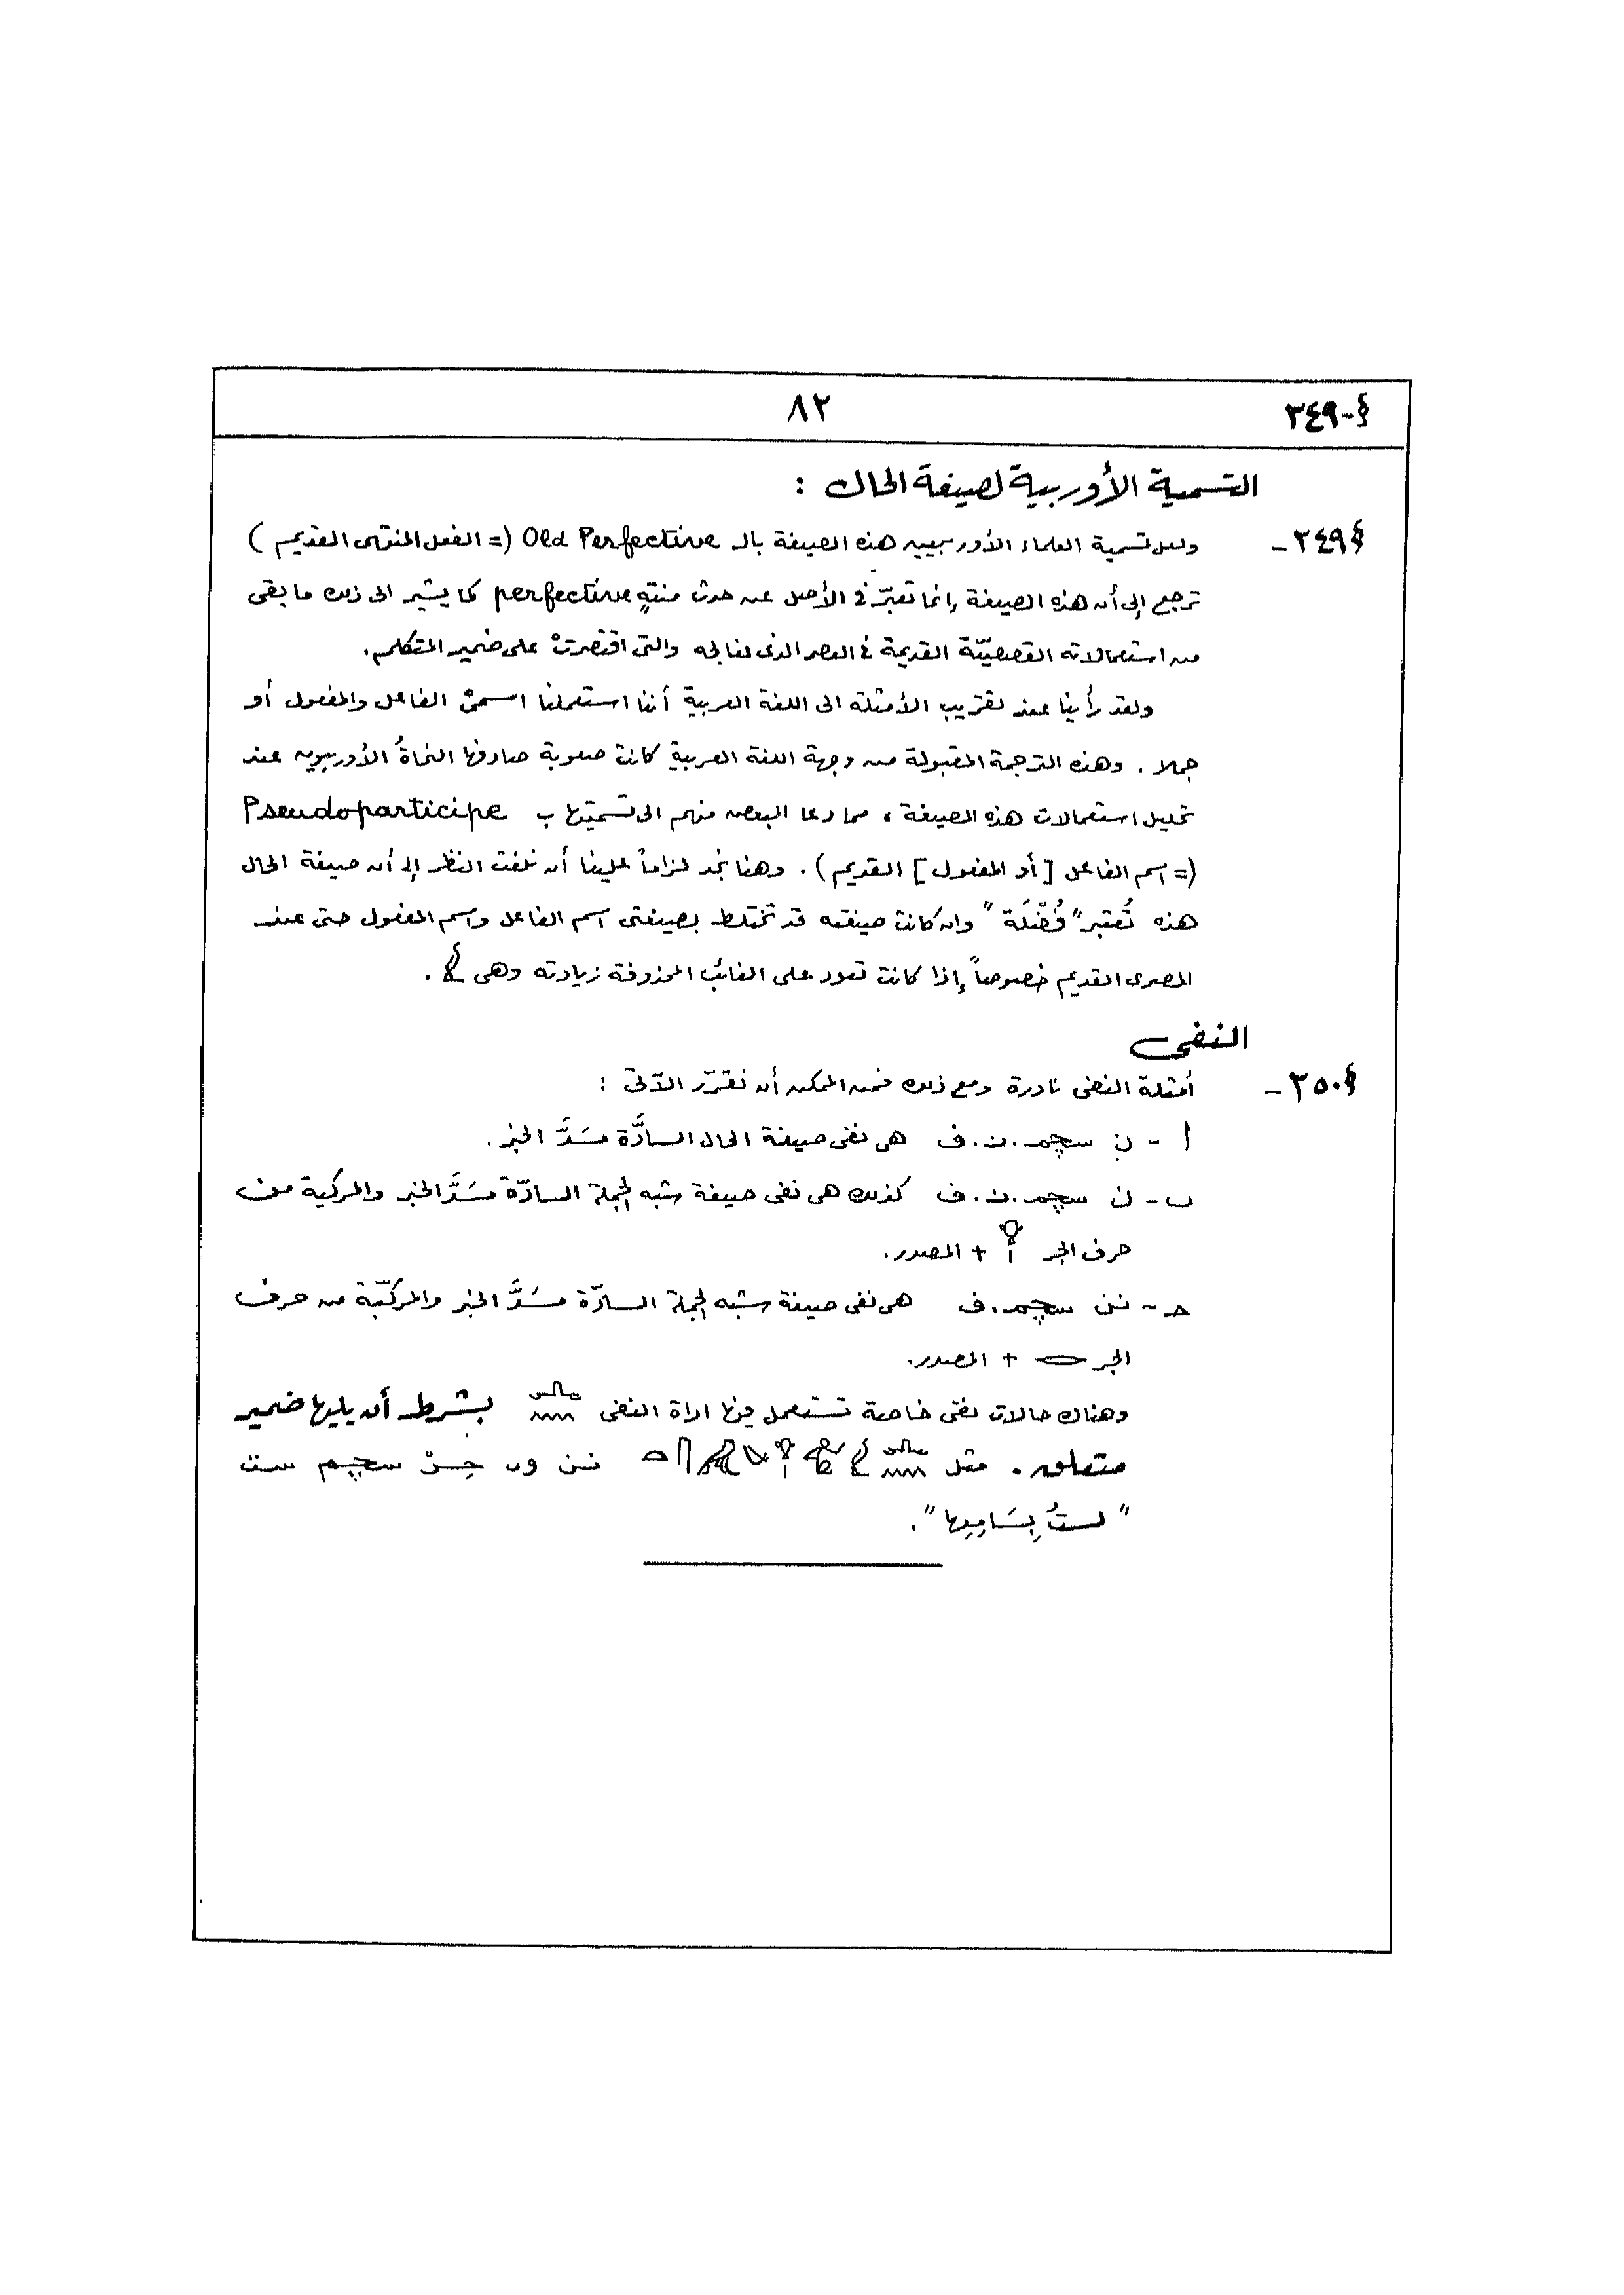 §-٣٤٩
٨٢
التسمية الأوربية لصيغة الحال :
§٣٤٩- ولعل تسمية العلماء الأوربيين هذه الصيغة بالـ Old Perfective (= الفعل المنتهى القديم )
ترجع إلى أن هذه الصيغة إنما تعبّر فى الأصل عن حدث منتهٍ perfective كما يشير الى ذلك ما بقى
من استعمالاته القصصيّة القديمة فى العصر الذى نعالجه والتى اقتصرتْ على ضمير المتكلم.
ولقد رأينا عند تقريب الأمثلة الى اللغة العربية أننا استعملنا اسمىْ الفاعل والمفعول أو
جملا . وهذه الترجمة المقبولة من وجهة اللغة العربية كانت صعوبة صادفها النحاةُ الأوربيون عند
تحليل استعمالات هذه الصيغة ، مما دعا البعض منهم الى تسميتها ب Pseudoparticipe
(= اسم الفاعل [ أو المفعول ] القديم ) . وهنا نجد لزاماً علينا أن نلفت النظر إلى أن صيغة الحال
هذه تُعتبر " فُضْلَة " وإن كانت صيغته قد تختلط بصيغتى اسم الفاعل واسم المفعول حتى عند
المصرى القديم خصوصاً إذا كانت تعود على الغائب المحذوفة زيادته وهى 𓀀 .
النفى
§٣٥٠- أمثلة النفى نادرة ومع ذلك فمن الممكن أن نقرّر الآتى :
أ - ن سچم .ن. ف هى نفى صيغة الحال السادَّة مَسَدَّ الخبر .
ب - ن سچم .ن. ف كذلك هى نفى صيغة شبه الجملة السادّة مَسَدَّ الخبر والمركبة من
حرف الجر 𓁷𓏤 + المصدر.
ح - نن سچم . ف هى نفى صيغة شبه الجملة السادّة مَسَدَّ الخبر والمركّبة من حرف
الجر 𓂋 + المصدر.
وهناك حالات نفى خاصة تستعمل فيها اداة النفى 𓂜𓈖 بشرط أن يليها ضمير
متعلق . مثل نن وى حِرْ سچم ست
" لستُ بِسَامِعِها " .